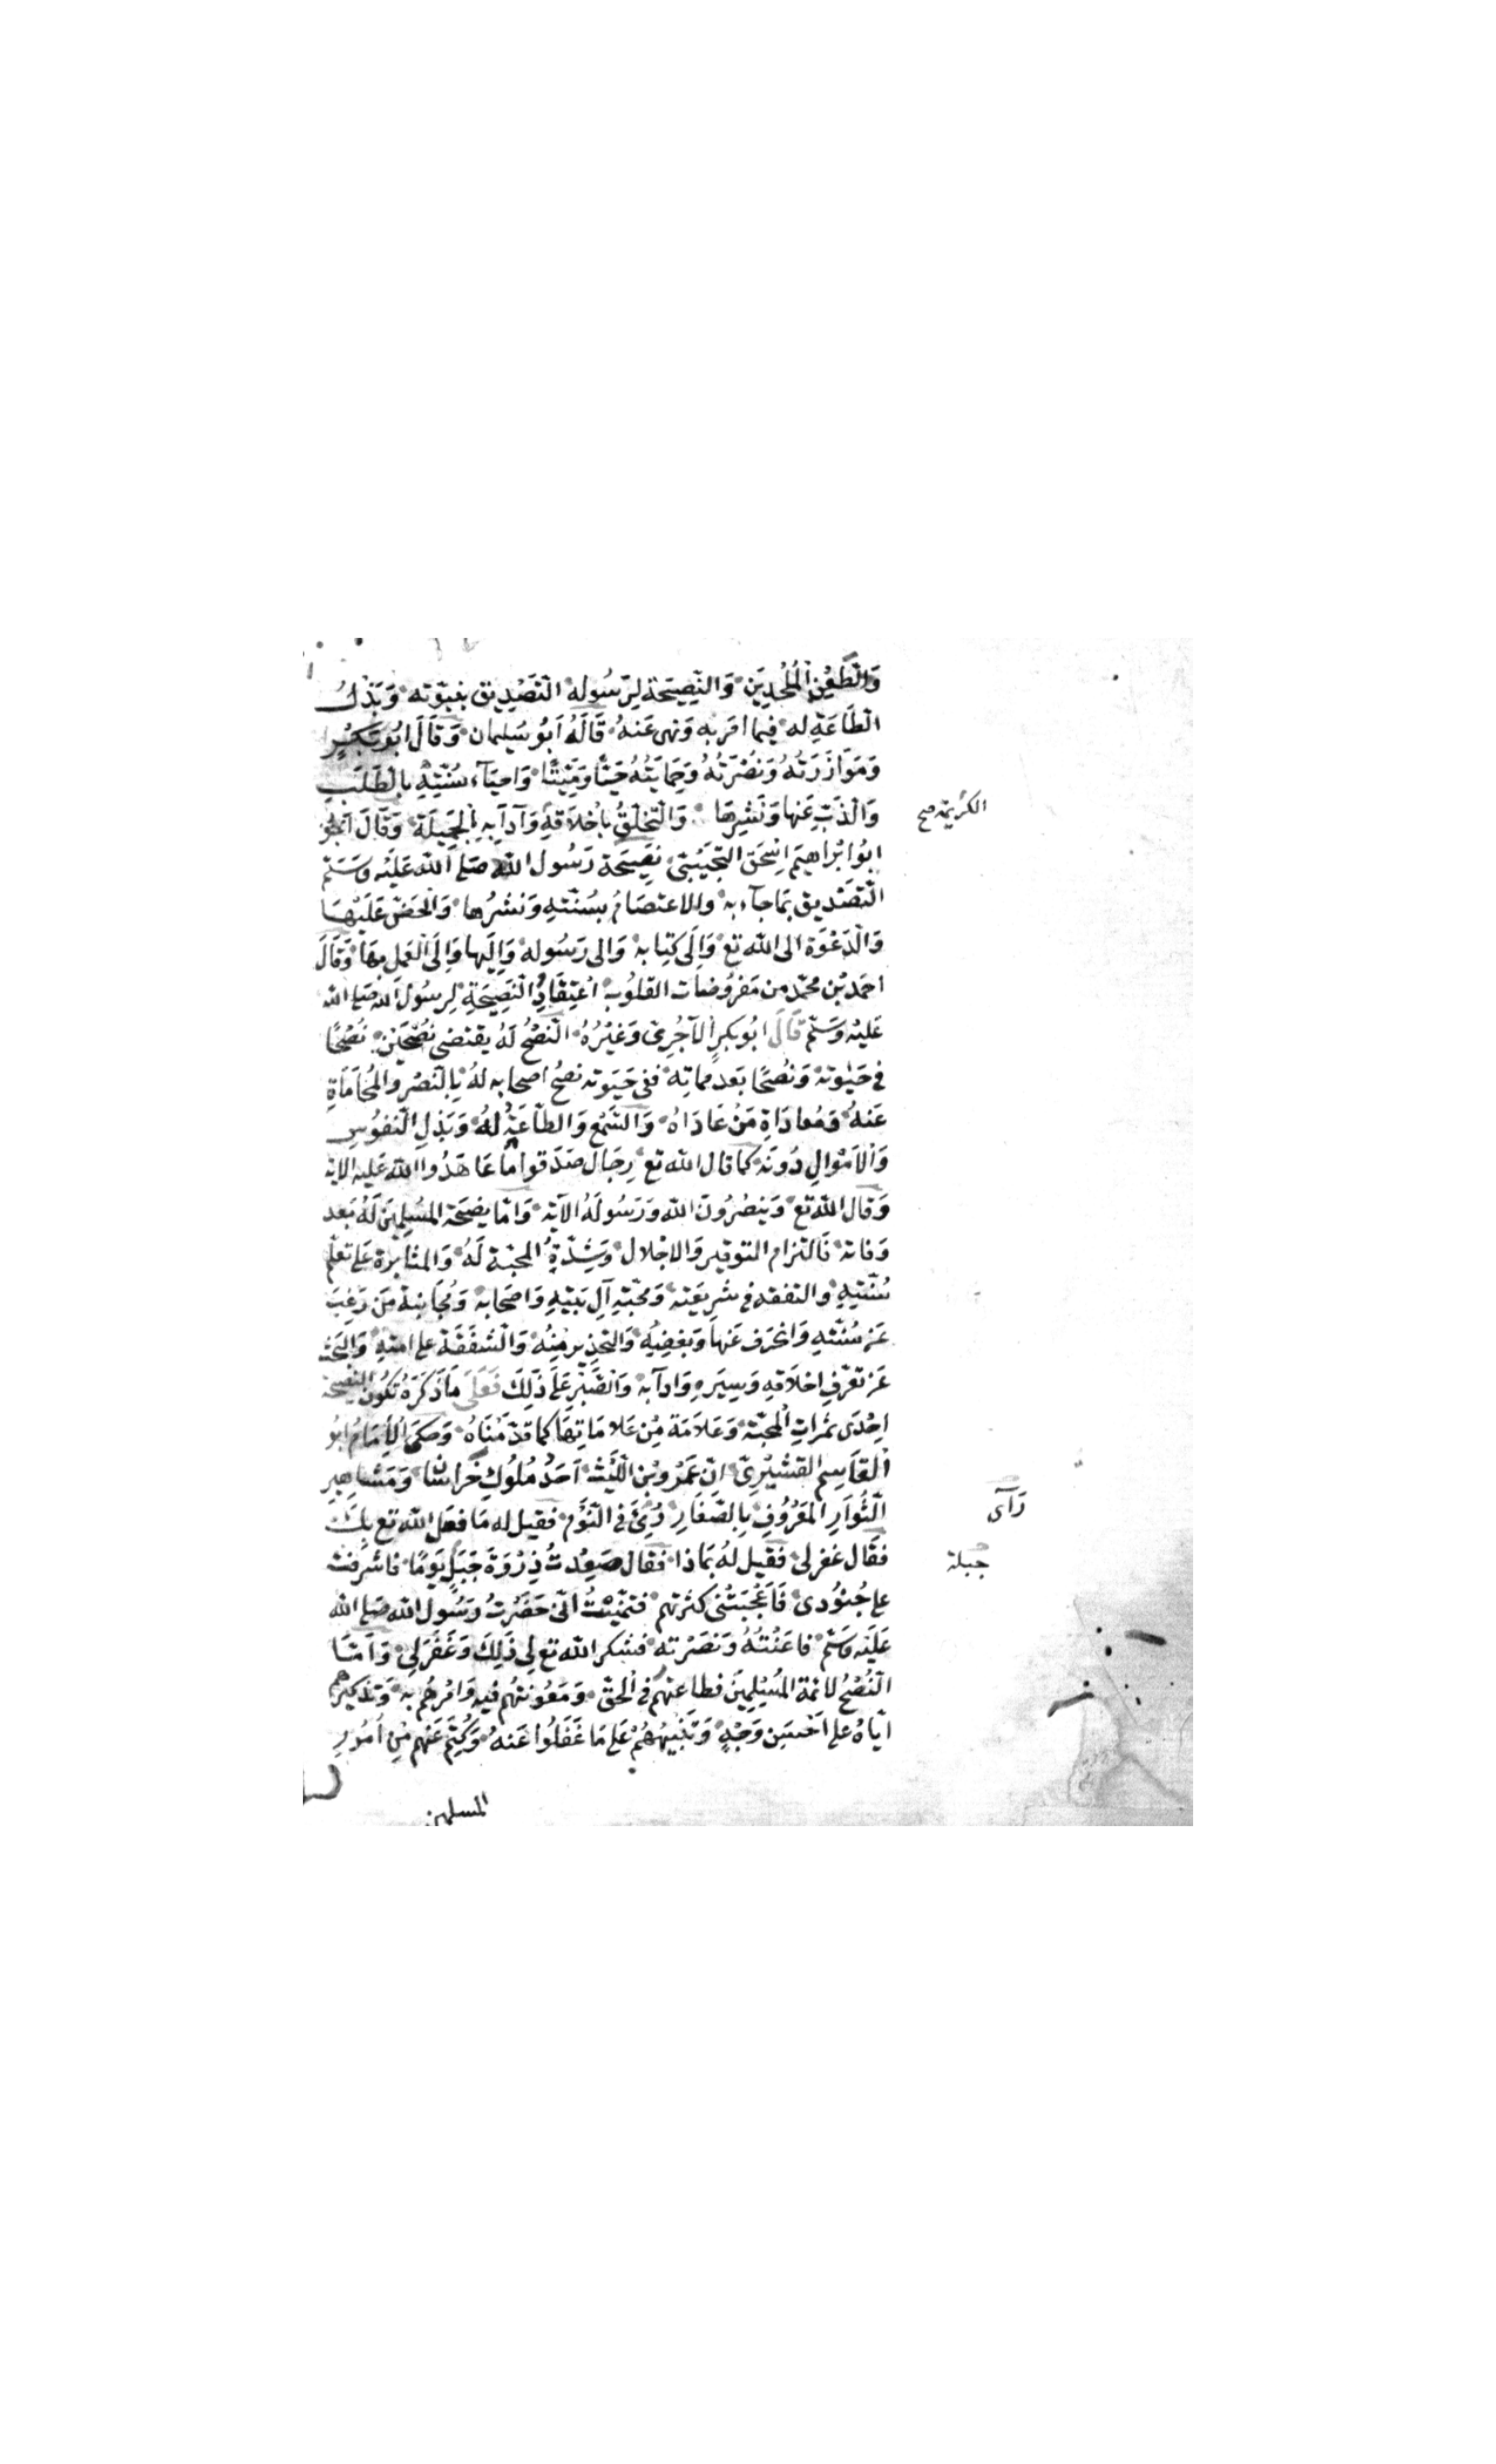 وَالطَّعْنِ الْمُلْحِدِيَن وَالنَّصِيحَةُ لِرَسُولِهِ التَّصْدِيقُ بِنُبُوَّتِهِ وَبَذْلُ
الطَّاعَةِ لَهُ فِيمَا اَمَرَ بِهِ وَنَهَى عَنْهُ قَالَهُ اَبُو سُلَيمان وَقَالَ اَبُو بَكْرٍ
وَمَوَازَرَتُهُ وَنُصْرَتُهُ وَحِمَايَتُهُ حَيًّا وَمَيِّتًا وَاحِيَآء سُنَّتِهِ بِالطَّلَبِ
وَالذَّبِّ عَنها وَنَشْرِهَا وَالتَّخَلُّقُ بِاَخْلَاقِهِ وَآدَابِهِ الجَمِيلَةِ وَقَالَ
الكريمة صح
ابُو ابْرَاهيَم اِسْحَق التُّجَيْبِيّ نَصِيَحَة رَسُول الله صَلى الله عَلَيْهِ وَسَلّم
التَّصْديق بَماَ جآء بِهِ والاعتصَامُ بِسُنَّتهِ وَنشرُها وَالْحَضّ عَلَيْهَا
وَالدَعْوَة الى الله تع وَاِلَى كِتَابِهِ وَالى رَسُوله وَاِلَيها وَاِلَى العَمل بهَا وَقَالَ
احمَد بْن محمّد من مَفرُوضات القلُوب اعْتِقَادُ النَّصِيَحَةِ لِرسُول الله صَلى الله
عَليْه وَسَلّم قَالَ ابُو بكرٍ الآجُرِيّ وَغَيْرُهُ النّصْحُ لَهُ يقتضى نُصْحَيْن نُصْحًا
في حَيٰوته وَنُصحًا بَعدَ مماتِه ففي حَيَوته نصحُ اصحابه لهُ بِالنَصْرِ وَالمُحَامَاةِ
عَنهُ وَمُعادَاةِ مَنْ عَادَاهُ وَالسَّمْعِ وَالطَّاعَةِ لهُ وَبَذلِ النّفوُسِ
وَالاَمْوَالِ دُونَهُ كما قال الله تع رِجَال صَدَقوا مَا عَاهَدُوا الله عَليه الاية
وَقال الله تع وَيَنصُرُونَ الله وَرَسُولَهُ الآية وَامّا نصيحَة المُسْلِمِينَ لَهُ بَعد
وَفاته فَالتزام التوقير وَالاجْلال وَشِدّةِ المحبّة لَهُ وَالمثابرَة عَلى تعلّم
سُنّتهِ والتفقه في شَرِيعَته وَمحَبّةِ آلِ بَيْتهِ وَاصحَابه وَمُجَانبة مَن رَغِبَ
عَن سُنّتهِ وَانحَرف عَنها وَبغضِهِ وَالتحذيرِ مِنهُ وَالشَفَقَة على امتهِ وَالبَحث
عَن تعَرّفِ اخلَاقهِ وَسِيَرهِ وَادابه وَالصَّبْر عَلَى ذَلِكَ فَعَلَى مَا ذَكَرَهُ تكُون النصيحَة
احِدَى ثمَراتِ المحَبّة وَعَلَامَة مِنْ عَلامَاتِهَا كما قدّمْنَاهُ وَحكَى الاِمَامُ ابُو
القَاسِم القشَيْرِيّ انّ عَمْرو بْن اللّيْث اَحَدُ مُلُوكِ خُراسَان وَمَشَاهِيرِ
الثُّوَارِ المَعْرُوفِ بِالصّفَارِ رُئِىَ في النّوْم فقيل له مَا فعَل الله تع بِكَ
رَآى
فقَال غفر لى فقيل لهُ بَماذا فقال صَعِدْتُ ذِرْوَةَ جَبَلٍ يَوْمًا فاشرفت
جبلة
على جُنوُدى فَاَعْجَبَتْنى كثرتهم فتمَنّيْتُ اَنّى حَضَرْتُ رَسُول الله صَلى الله
عَلَيْه وَسَلّم فاعَنْتُهُ وَنصَرْته فشكر الله تع لى ذَلِكَ وَغَفَرَلِى وَاَمّا
النُصْحُ لائمّة المُسْلِمِينَ فطاعتهم في الحقّ وَمَعُونتهُم فيهِ وَامْرهُم بِهِ وَتذكيرهم
ايّاهُ على اَحْسَنِ وَجْهٍ وَتَنْبِيْهُهُمْ عَلى مَا غَفَلُوا عَنهُ وَكُتِمَ عَنهم مِن اُمُورِ
المسلمين